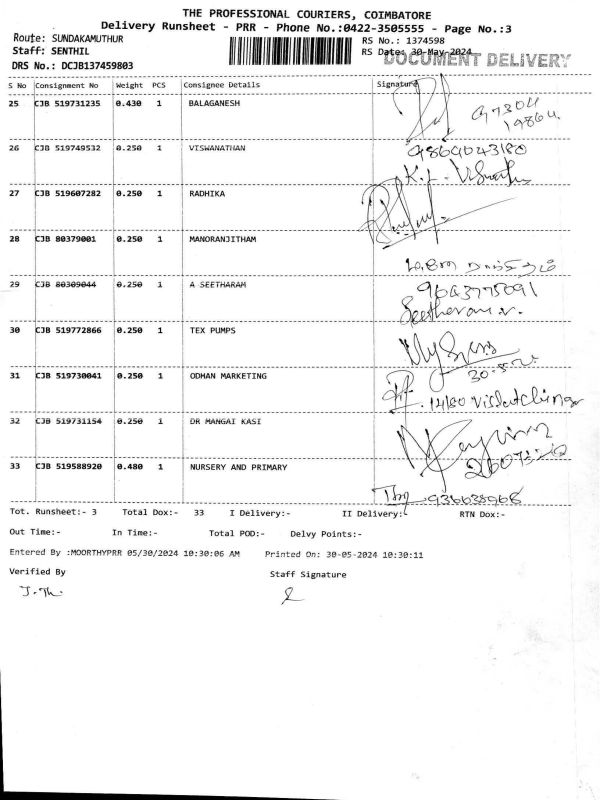 THE PROFESSIONAL COURIERS, COIMBATORE
Delivery Runsheet - PRR - Phone No.:0422-3505555 - Page No.:3
Route: SUNDAKAMUTHUR
RS No.: 1374598
Staff: SENTHIL
RS Date: 30-May-2024
DOCUMENT DELIVERY
DRS No.: DCJB137459803
S No Consignment No Weight PCS Consignee Details Signature
25 CJB 519731235 0.430 1 BALAGANESH
26 CJB 519749532 0.250 1 VISWANATHAN
27 CJB 519607282 0.250 1 RADHIKA
28 CJB 80379001 0.250 1 MANORANJITHAM
29 CJB 80309044 0.250 1 A SEETHARAM
30 CJB 519772866 0.250 1 TEX PUMPS
31 CJB 519730041 0.250 1 ODHAN MARKETING
32 CJB 519731154 0.250 1 DR MANGAI KASI
33 CJB 519588920 0.480 1 NURSERY AND PRIMARY
Tot. Runsheet:- 3 Total Dox:- 33 I Delivery:- II Delivery:- RTN Dox:-
Out Time:- In Time:- Total POD:- Delvy Points:-
Entered By :MOORTHYPRR 05/30/2024 10:30:06 AM Printed On: 30-05-2024 10:30:11
Verified By Staff Signature